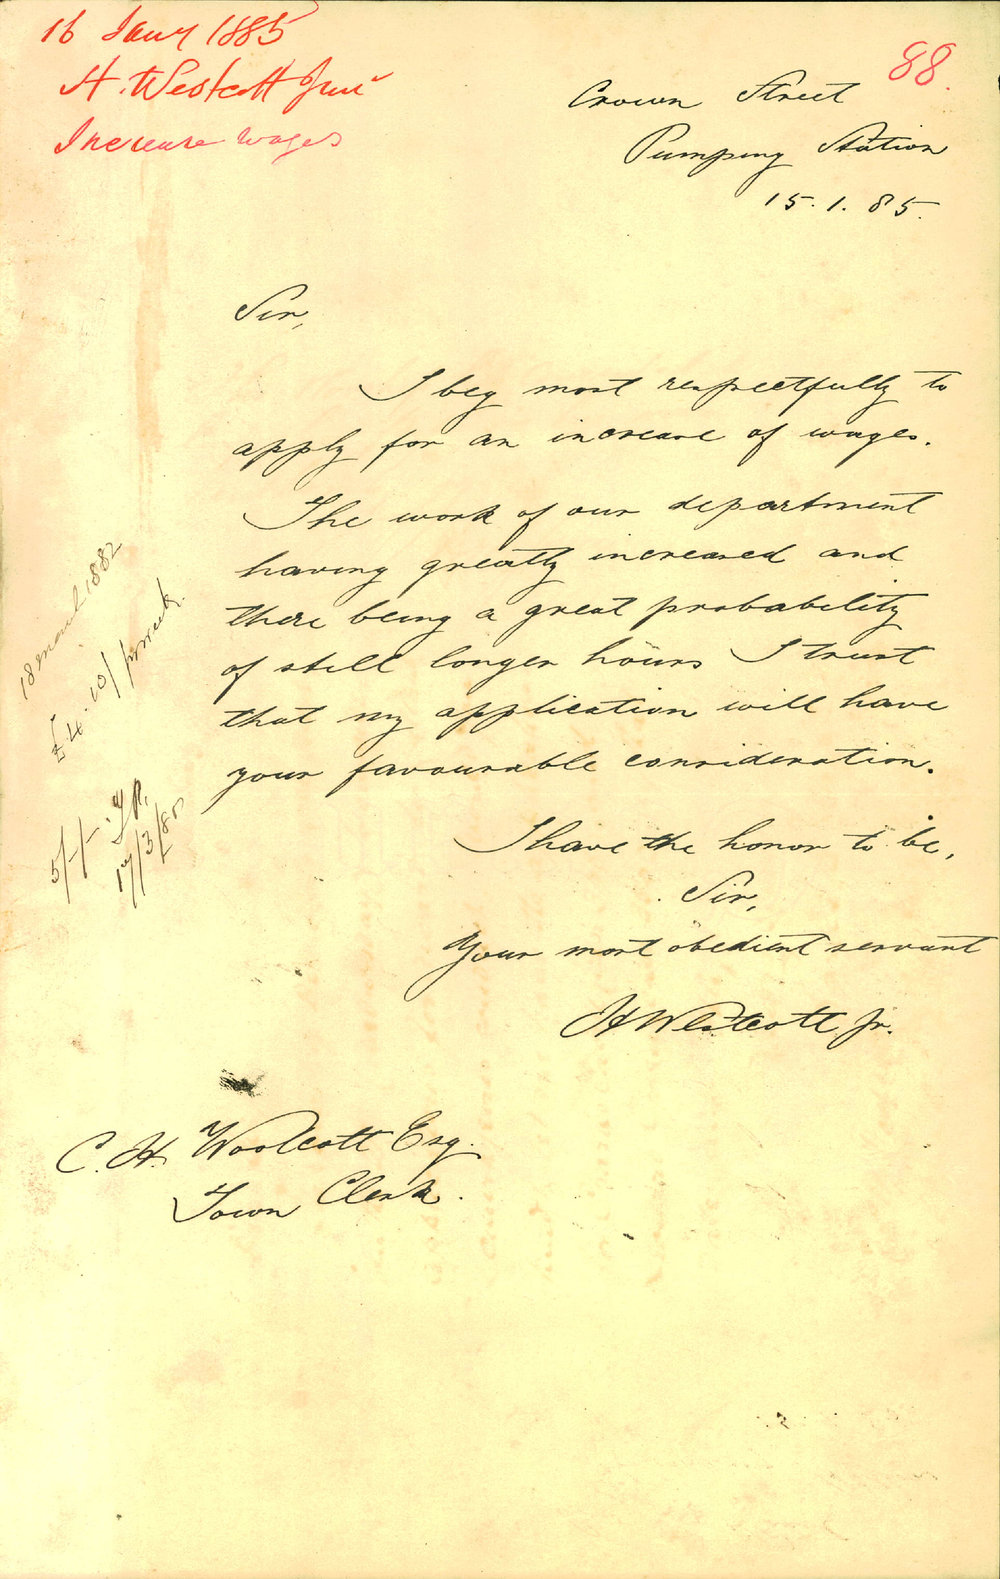 16 Jany 1885
H. Westcott Junr
Increase wages
88.
Crown Street
Pumping Station
15.1.85.
Sir,
I beg most respectfully to
apply for an increase of wages.
The work of our department
having greatly increased and
there being a great probability
of still longer hours I trust
that my application will have
your favourable consideration.
I have the honor to be,
Sir,
Your most obedient servant
H Westcott Jr.
C. H. Woolcott Esq.
Town Clerk.
18 March 1882
£4.10/ pr week.
5/-/-
17/3/85